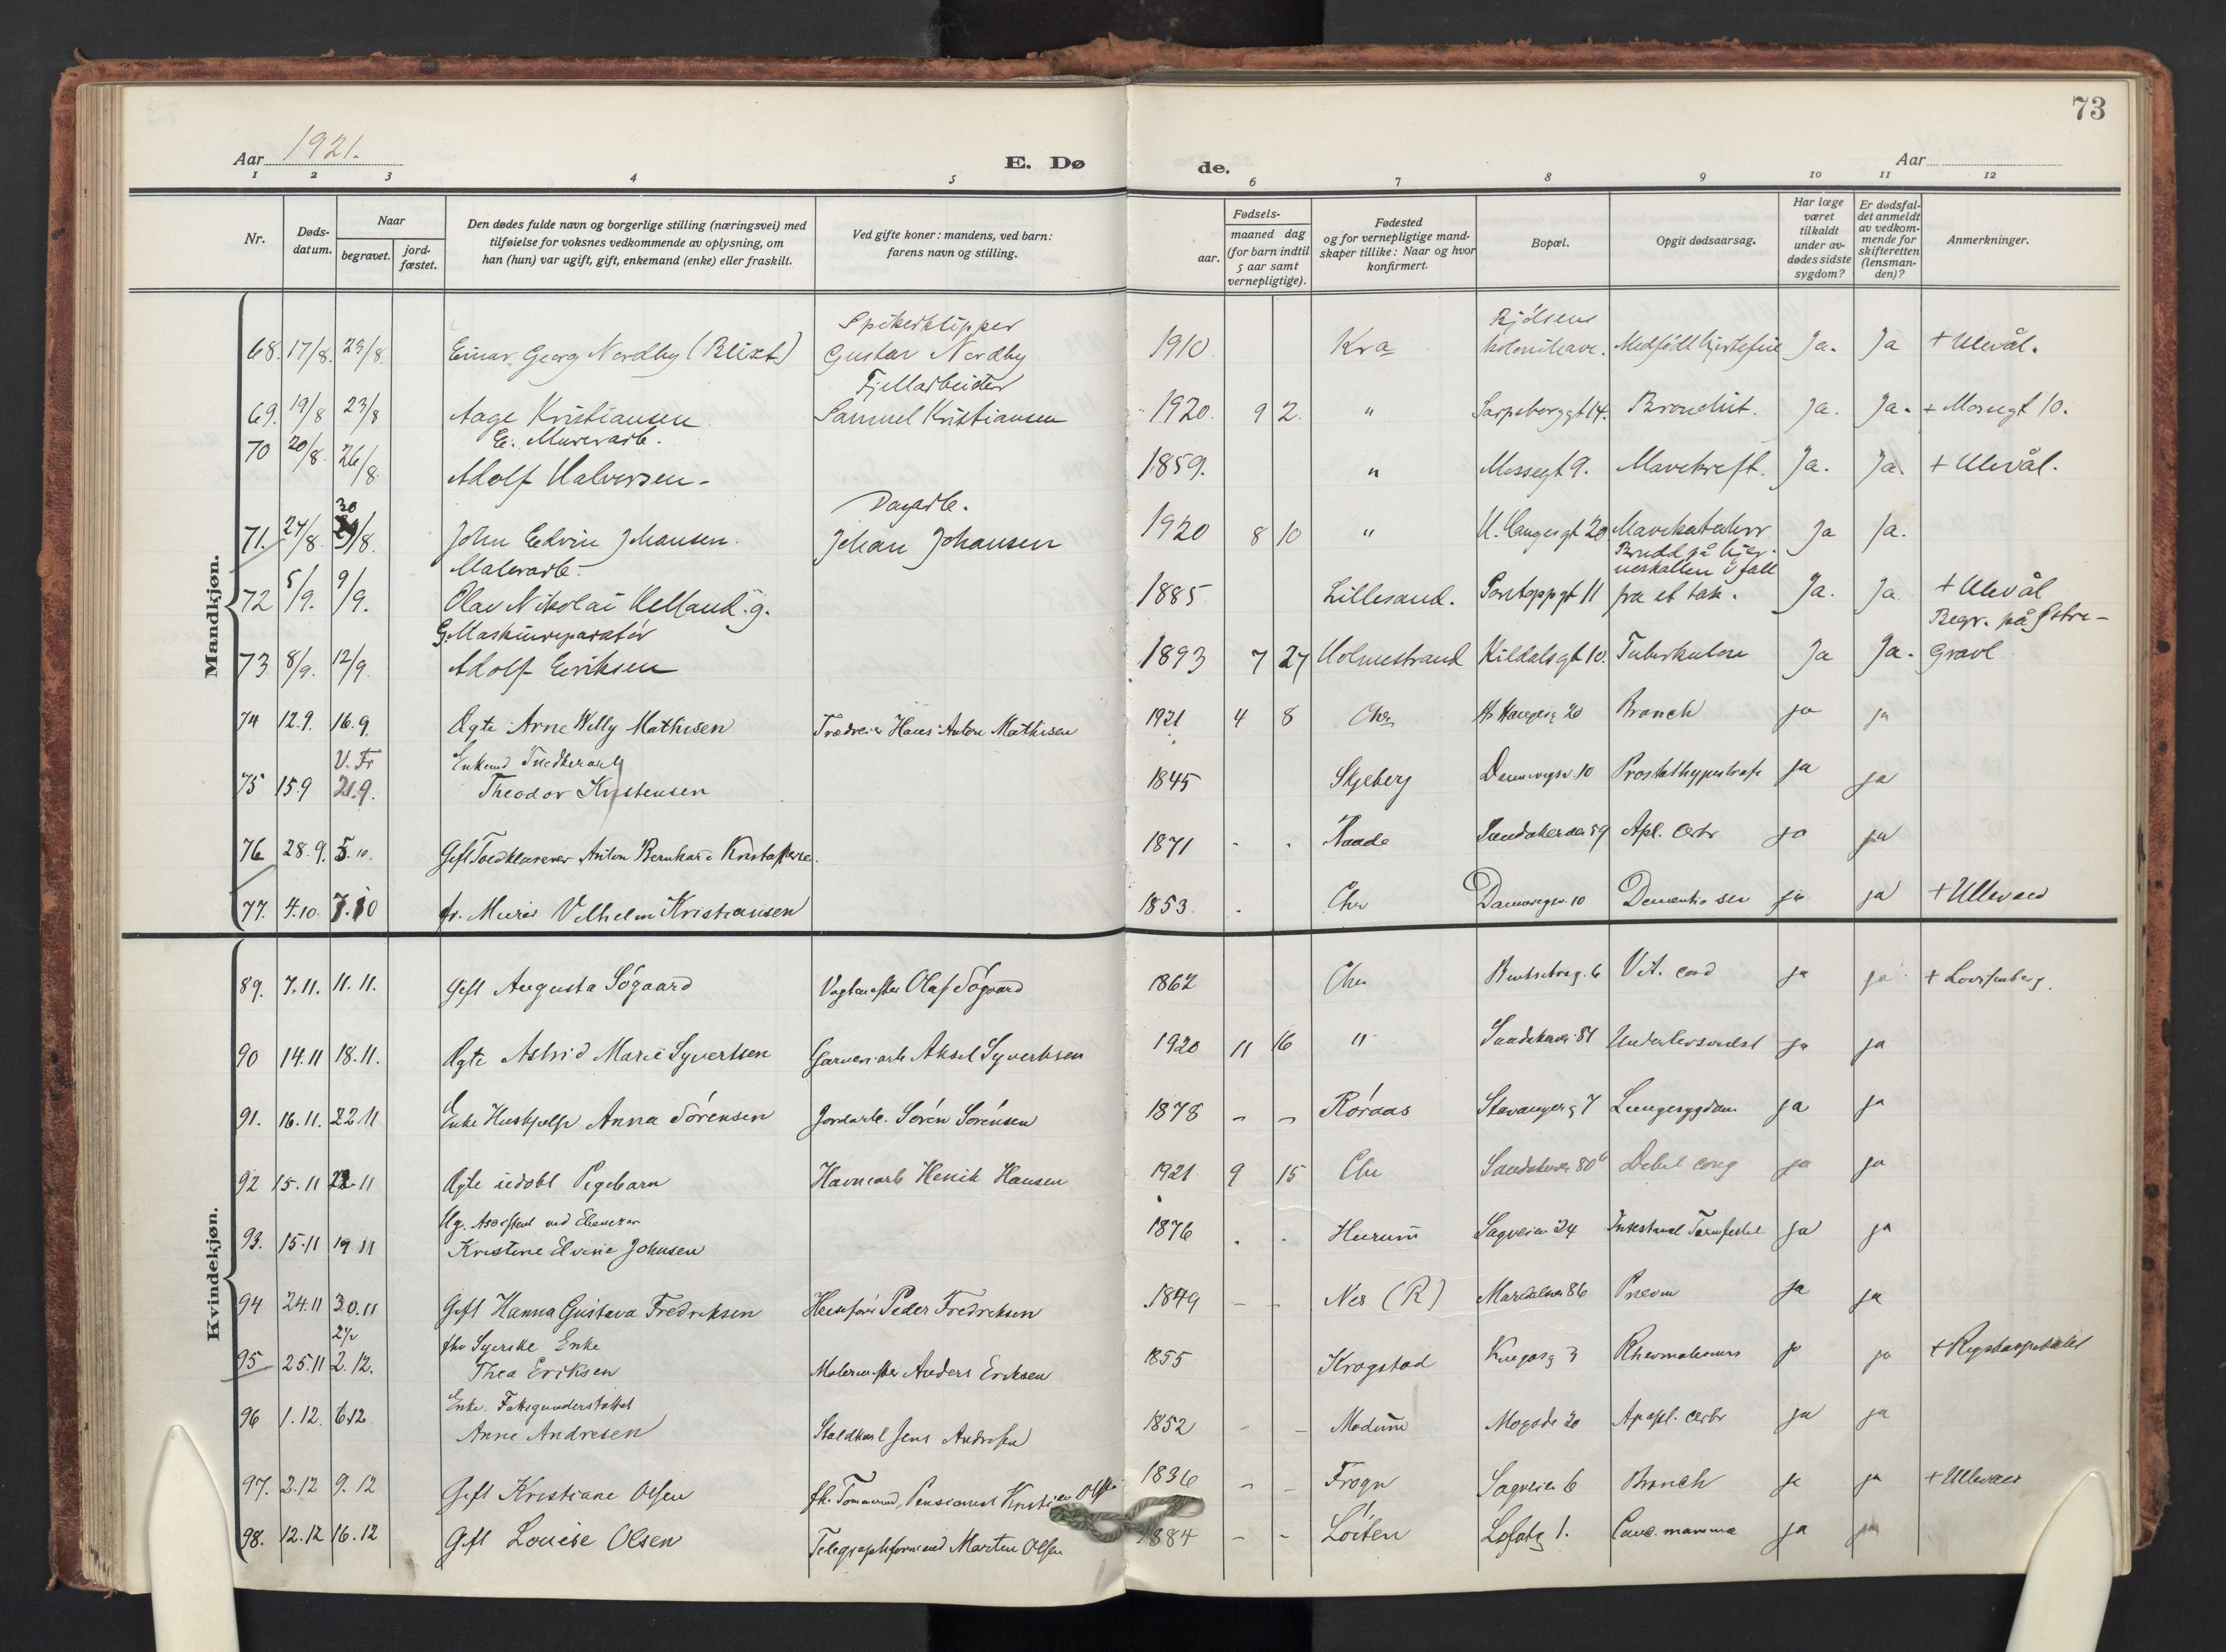 73
Aar 1921.
E. Dø
de.
Aar
1 2 3 4 5 6 7 8 9 10 11 12
Nr.
Døds-
datum.
Naar
begravet.
jord-
fæstet.
Den dødes fulde navn og borgerlige stilling (næringsvei) med
tilføielse for voksnes vedkommende av oplysning, om
han (hun) var ugift, gift, enkemand (enke) eller fraskilt.
Ved gifte koner: mandens, ved barn:
farens navn og stilling.
Fødsels-
aar.
maaned dag
(for barn indtil
5 aar samt
vernepligtige).
Fødested
og for vernepligtige mand-
skaper tillike: Naar og hvor
konfirmert.
Bopæl.
Opgit dødsaarsag.
Har læge
været
tilkaldt
under av-
dødes sidste
sygdom?
Er dødsfal-
det anmeldt
av vedkom-
mende for
skifteretten
(lensman-
den)?
Anmerkninger.
Mandkjøn.
Spikerklipper Bjølsens
68. 17/8. 23/8. Einar Georg Nordby (Blixt) Gustav Nordby 1910 Kra kolonihave. Medfødt hjertefeil Ja. Ja + Ulevål.
Fjellarbeider
69. 19/8 23/8 Aage Kristiansen Samuel Kristiansen 1920. 9 2. " Sarpsborggt 14. Bronchit. Ja. Ja. + Mossegt 10.
E. Murerarb.
70 20/8. 26/8 Adolf Halvorsen - 1859. " Mossegt 9. Mavekreft. Ja. Ja. + Ulevål.
30 Dagarb.
71. 27/8. /8. John Edvin Johansen. Johan Johansen 1920 8 10 " H. Haugesgt 20 Mavekatahrr Ja Ja.
Malerarb. Brudd på hjer-
neskallen v fall
72 5/9. 9/9. Olav Nikolai Helland. g. 1885 Lillesand. 11 fra et tak. Ja. Ja + Ulevål
G. Maskinreparatör Begr. på Østre-
73 8/9. 12/9. Adolf Eriksen 1893 7 27 Holmestrand Kildalsgt 10. Tuberkulose Ja Ja. Gravl
74 12.9. 16.9. Ægte Arne Willy Mathisen Hans Anton Mathisen 1921 4 8 Chra 20 Bronch ja ja
V. Fr Enkemd
75 15.9 21.9. Theodor Kristensen 1845 Skjeberg 10 ja ja
76 28.9. 5.10. Gift Anton Bernhard 1871 - - Raade 59 Apl. cerbr ja ja
77. 4.10. 7.10 fv. Murer Vilhelm Kristiansen 1853 . Chra 10 Dementia sen ja ja + Ullevaal
Kvindekjøn.
89. 7.11. 11.11. Gift Augusta Søgaard Vagtmester Olaf Søgaard 1862 Chra 6 Vit. cord ja ja + Lovisenberg.
90 14.11 18.11. Ægte Astrid Marie Syvertsen Garveriarb Aksel Syvertsen 1920 11 16 " Sandakervei 81 ja ja
91. 16.11. 22 11 Enke Hushjelp Anna Sørensen Jordarb. Søren Sørensen 1878 - - Røraas Stavangerg 7 Lungesygdom ja ja
92 15.11 22.11 Ægte udøbt Pigebarn Havnearb Henrik Hansen 1921 9 15 Chr Debil cong ja ja
Ug. Assistent ved Ebenezer
93. 15.11 19 11 Kristine Elvine Johnsen 1876 . . Hurum Sagveien 24 ja ja
94 24.11 30.11 Gift Hanna Gustava Fredriksen Peder Fredriksen 1849 - - Nes (R) 86 Pneum ja ja
fhv Syerske Enke
95 25.11 2.12. Thea Eriksen Malermester Anders Eriksen 1855 Krogstad 3 Rheumatismus ja ja + Rigshospitalet
Enke. Fattigunderstøttet
96 1.12. 6.12 Anne Andresen Staldkarl Jens Andresen 1852 - - Modum 20 Apopl. cerbr ja ja
97. 2.12 9.12 Gift Kristiane Olsen fh. Tømmermd, Pensionist Kristian Olsen 1836 - - Frogn Sagveien 6 Bronch ja ja + Ullevaal
98. 12.12 16.12 Gift Louise Olsen Telegraphformand Marten Olsen 1884 - - Løiten 1. Canc. mamma ja ja